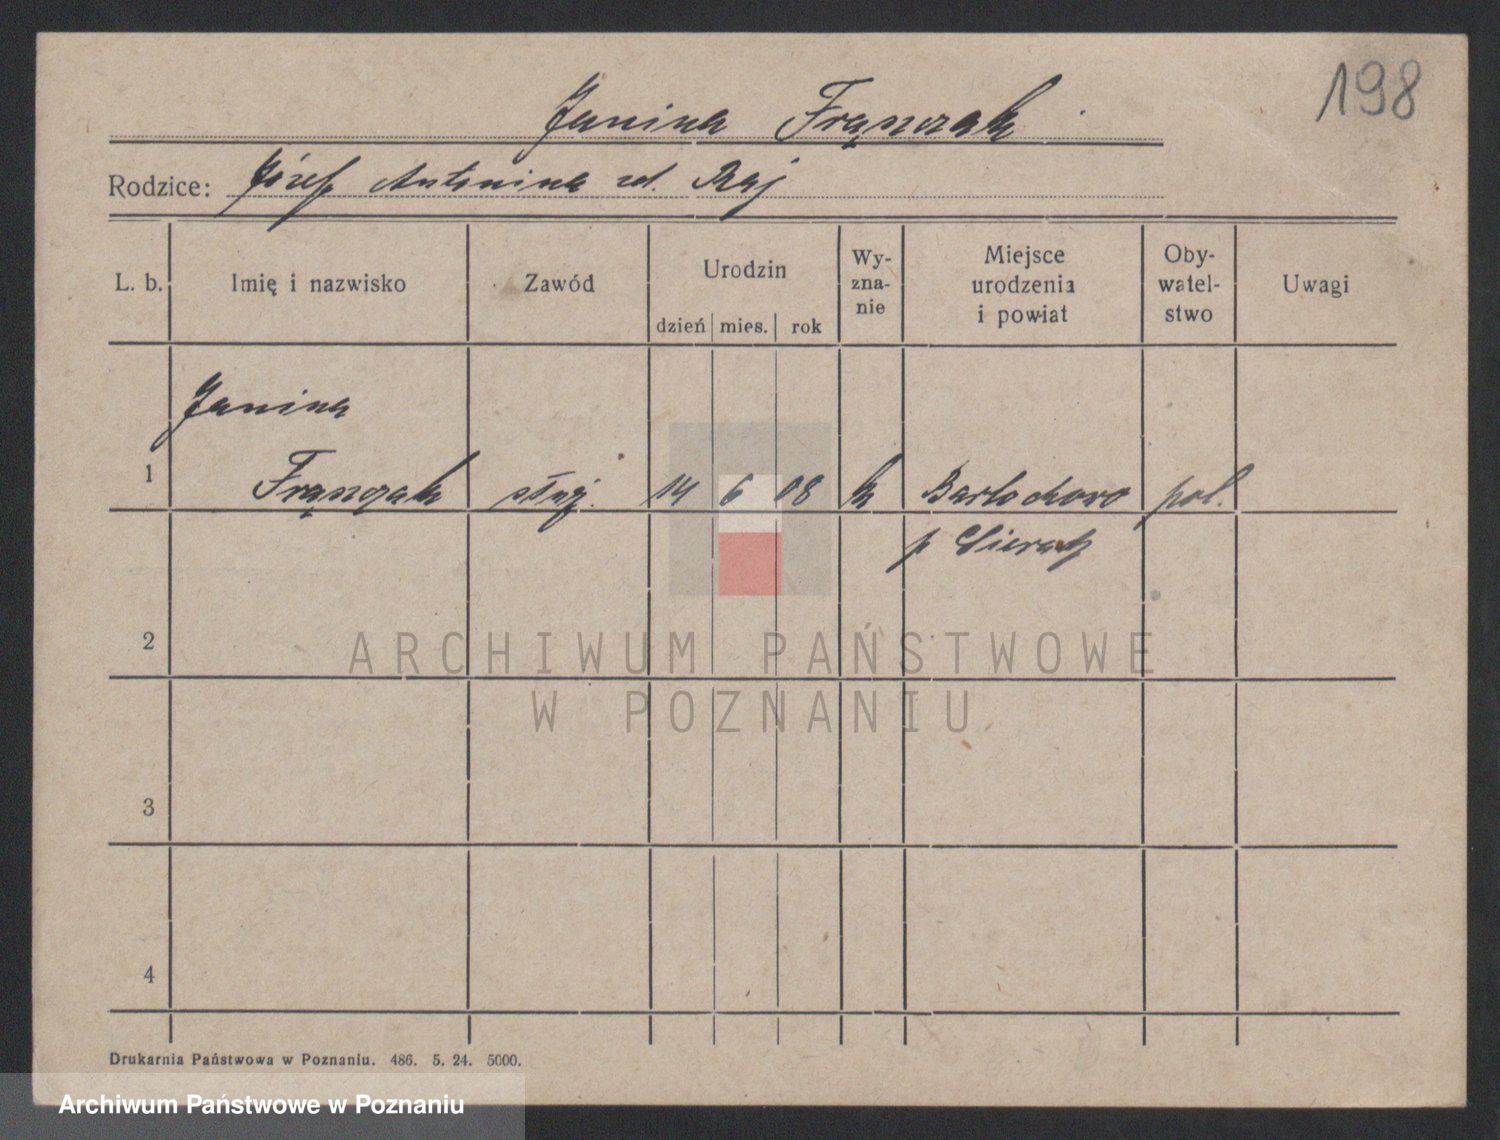 198
Janina Frąszczak
Rodzice: Józef Antonina zd. Raj
L. b. Imię i nazwisko Zawód Urodzin dzień mies. rok Wy-zna-nie Miejsce urodzenia i powiat Oby-watel-stwo Uwagi
Janina
1 14 6 08 k pol.
p Sieradz
2
ARCHIWUM PAŃSTWOWE
W POZNANIU
3
4
Drukarnia Państwowa w Poznaniu. 486. 5. 24. 5000.
Archiwum Państwowe w Poznaniu